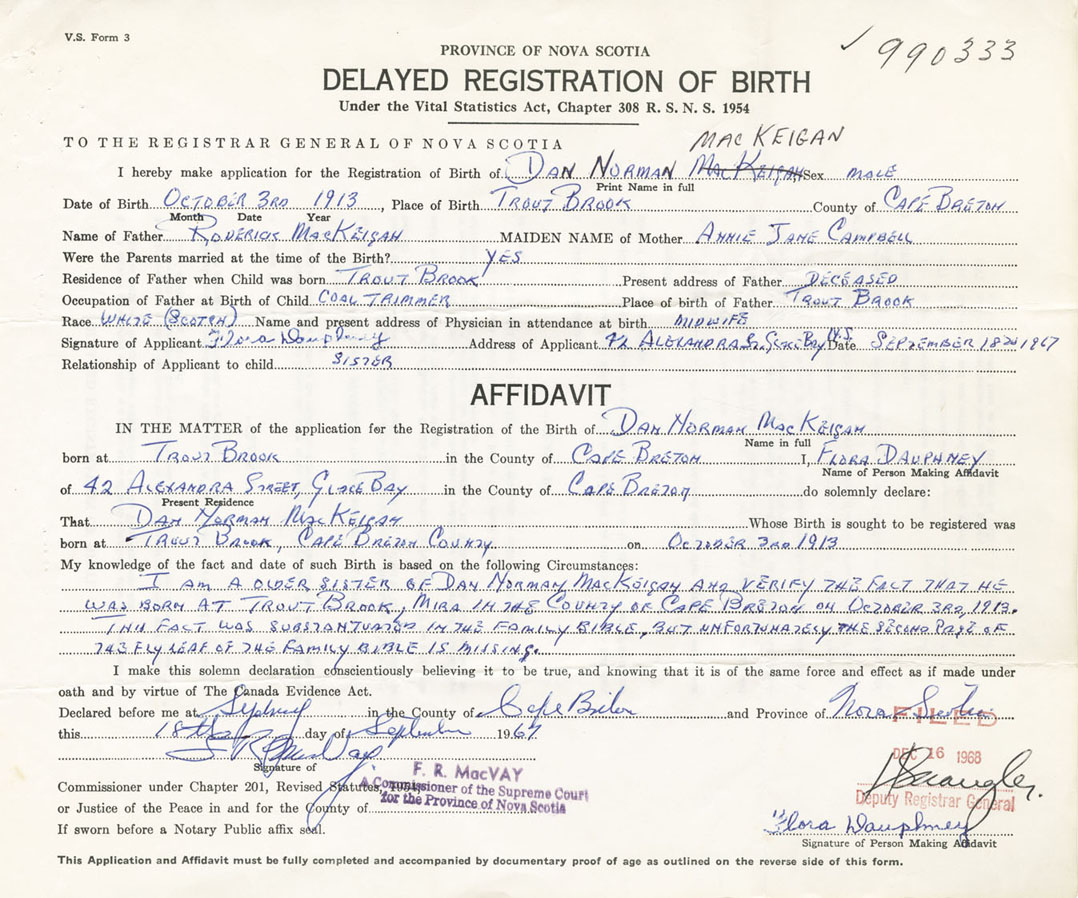 V.S. Form 3
✓ 990333
PROVINCE OF NOVA SCOTIA
DELAYED REGISTRATION OF BIRTH
Under the Vital Statistics Act, Chapter 308 R. S. N. S. 1954
TO THE REGISTRAR GENERAL OF NOVA SCOTIA
MAC KEIGAN
I hereby make application for the Registration of Birth of DAN NORMAN MACKEIGAN Sex MALE
Print Name in full
Date of Birth OCTOBER 3RD 1913, Place of Birth TROUT BROOK County of CAPE BRETON
Month Date Year
Name of Father RODERICK MACKEIGAN MAIDEN NAME of Mother ANNIE JANE CAMPBELL
Were the Parents married at the time of the Birth? YES
Residence of Father when Child was born TROUT BROOK Present address of Father DECEASED
Occupation of Father at Birth of Child COAL TRIMMER Place of birth of Father TROUT BROOK
Race WHITE (SCOTCH) Name and present address of Physician in attendance at birth MIDWIFE
Signature of Applicant Flora Dauphney Address of Applicant 42 ALEXANDRA ST. GLACE BAY N.S. Date SEPTEMBER 18TH 1967
Relationship of Applicant to child SISTER
AFFIDAVIT
IN THE MATTER of the application for the Registration of the Birth of DAN NORMAN MACKEIGAN
Name in full
born at TROUT BROOK in the County of CAPE BRETON I, FLORA DAUPHNEY
Name of Person Making Affidavit
of 42 ALEXANDRA STREET, GLACE BAY in the County of CAPE BRETON do solemnly declare:
Present Residence
That DAN NORMAN MACKEIGAN Whose Birth is sought to be registered was
born at TROUT BROOK, CAPE BRETON COUNTY on OCTOBER 3RD 1913
My knowledge of the fact and date of such Birth is based on the following Circumstances:
I AM A OLDER SISTER OF DAN NORMAN MACKEIGAN AND VERIFY THE FACT THAT HE
WAS BORN AT TROUT BROOK, MIRA IN THE COUNTY OF CAPE BRETON ON OCTOBER 3RD, 1913.
THIS FACT WAS SUBSTANTUATED IN THE FAMILY BIBLE, BUT UNFORTUNATELY THE SECOND PAGE OF
THE FLY LEAF OF THE FAMILY BIBLE IS MISSING.
I make this solemn declaration conscientiously believing it to be true, and knowing that it is of the same force and effect as if made under
oath and by virtue of The Canada Evidence Act.
Declared before me at Sydney in the County of Cape Breton and Province of Nova Scotia
FILED
this 18th day of September 1967
DEC 16 1968
F R MacVay
Signature of
F. R. MacVAY
Commissioner under Chapter 201, Revised Statutes, 1954,
A Commissioner of the Supreme Court
for the Province of Nova Scotia
Deputy Registrar General
or Justice of the Peace in and for the County of
Flora Dauphney
If sworn before a Notary Public affix seal.
Signature of Person Making Affidavit
This Application and Affidavit must be fully completed and accompanied by documentary proof of age as outlined on the reverse side of this form.